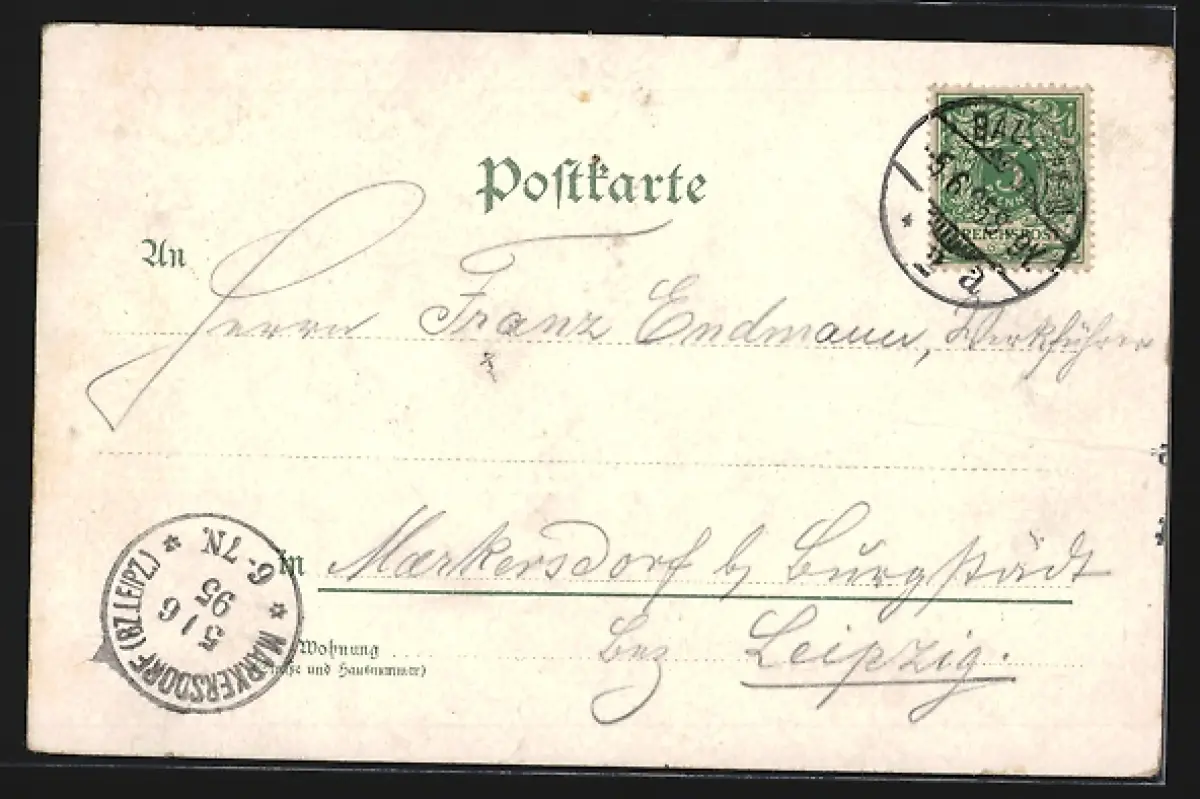 Postkarte
5
REICHSPOST
5.6.95
a
An
Herrn Franz Endmann, Werkführer
in Markersdorf b/ Burgstädt
Wohnung
(Straße und Hausnummer)
Bez Leipzig.
MARKERSDORF (BZ. LEIPZ.)
5 / 6
95
6-7N.